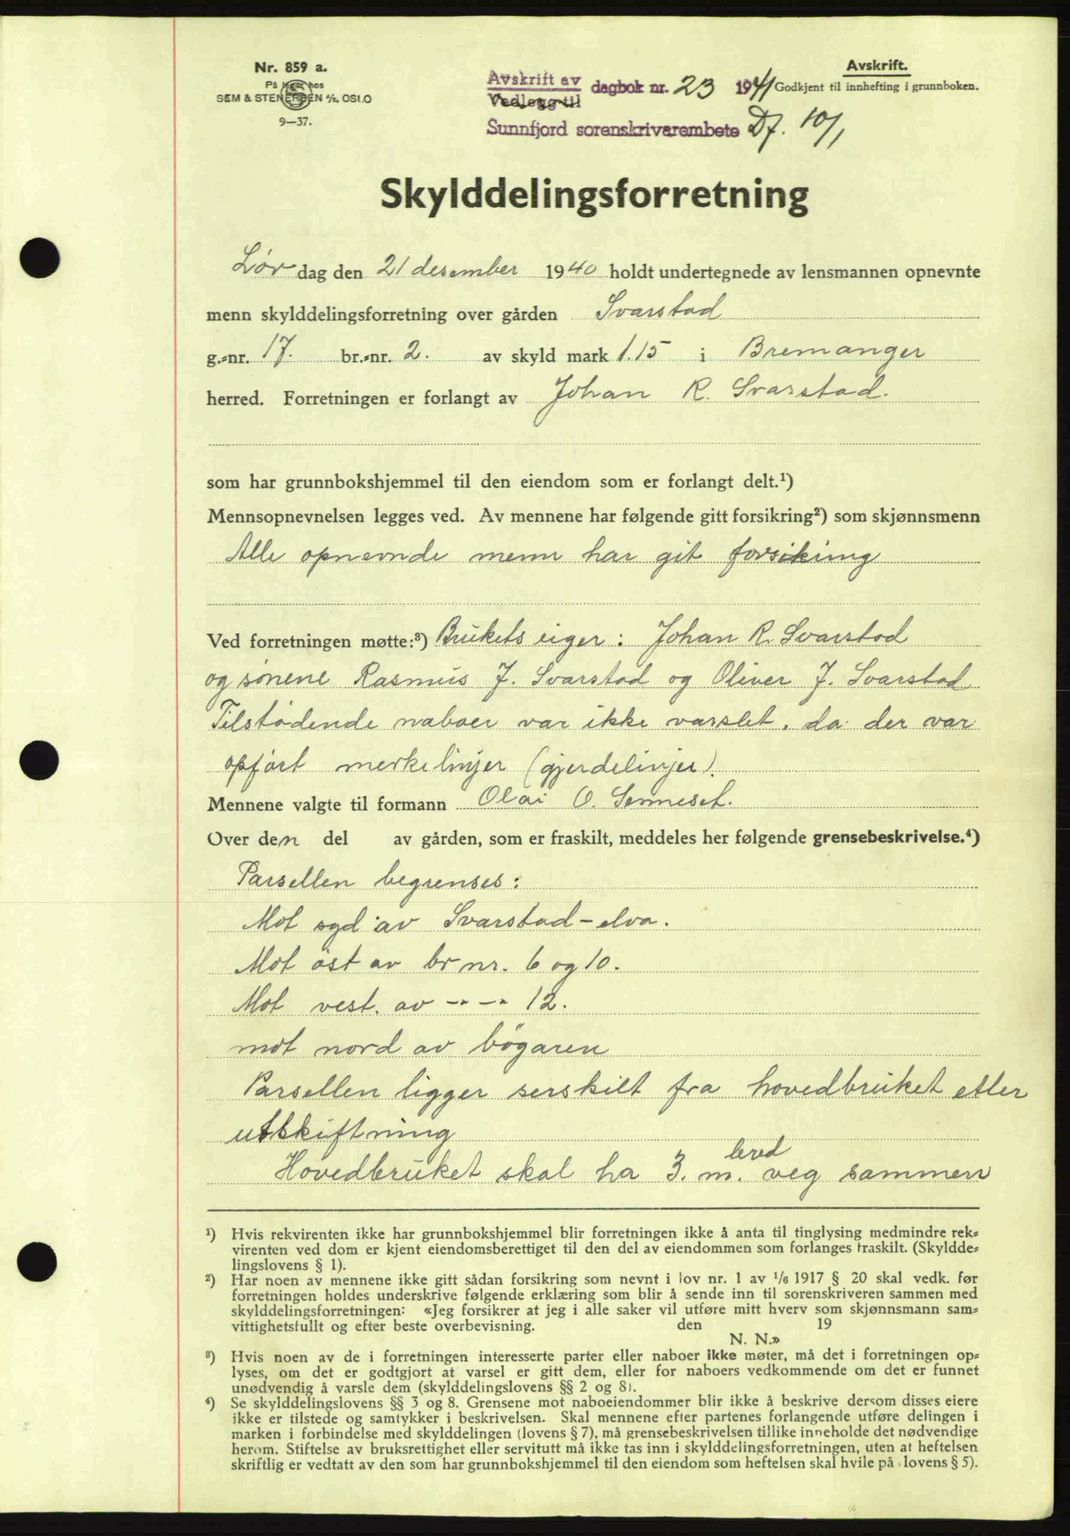 Nr. 859 a.
På lager hos
SEM & STENERSEN A/S, OSLO
9—37.
Avskrift av
Vedlegg til
dagbok nr. 23 1941
Sunnfjord sorenskrivarembete Df. 10/1
Avskrift.
Godkjent til innhefting i grunnboken.
Skylddelingsforretning
Lør dag den 21 desember 1940 holdt undertegnede av lensmannen opnevnte
menn skylddelingsforretning over gården Svarstad
g.-nr. 17. br.-nr. 2. av skyld mark 1.15 i Bremanger
herred. Forretningen er forlangt av Johan R. Svarstad.
som har grunnbokshjemmel til den eiendom som er forlangt delt.¹)
Mennsopnevnelsen legges ved. Av mennene har følgende gitt forsikring²) som skjønnsmenn
Alle opnevnde menn har git forsikring
Ved forretningen møtte:³) Brukets eiger: Johan R. Svarstad
og sønene Rasmus J. Svarstad og Oliver J. Svarstad
Tilstødende naboer var ikke varslet, da der var
opført merkelinjer (gjerdelinjer).
Mennene valgte til formann Olai O. Senneset.
Over den del av gården, som er fraskilt, meddeles her følgende grensebeskrivelse.⁴)
Parsellen begrenses:
Mot syd av Svarstad-elva.
Mot øst av br nr. 6 og 10.
Mot vest. av -"- -"- 12.
mot nord av bøgaren
Parsellen ligger serskilt fra hovedbruket etter
utskiftning
Hovedbruket skal ha 3. m. bred veg sammen
¹) Hvis rekvirenten ikke har grunnbokshjemmel blir forretningen ikke å anta til tinglysing medmindre rek-
virenten ved dom er kjent eiendomsberettiget til den del av eiendommen som forlanges fraskilt. (Skyldde-
lingslovens § 1).
²) Har noen av mennene ikke gitt sådan forsikring som nevnt i lov nr. 1 av 1/6 1917 § 20 skal vedk. før
forretningen holdes underskrive følgende erklæring som blir å sende inn til sorenskriveren sammen med
skylddelingsforretningen: «Jeg forsikrer at jeg i alle saker vil utføre mitt hverv som skjønnsmann sam-
vittighetsfullt og efter beste overbevisning. den 19
N. N.»
³) Hvis noen av de i forretningen interesserte parter eller naboer ikke møter, må det i forretningen op-
lyses, om det er godtgjort at varsel er gitt dem, eller for naboers vedkommende om det er funnet
unødvendig å varsle dem (skylddelingslovens §§ 2 og 8).
⁴) Se skylddelingslovens §§ 3 og 8. Grensene mot naboeiendommer blir ikke å beskrive dersom disses eiere
ikke er tilstede og samtykker i beskrivelsen. Skal mennene efter partenes forlangende utføre delingen i
marken i forbindelse med skylddelingen (lovens § 7), må grensebeskrivelsen tillike inneholde det nødvendige
herom. Stiftelse av bruksrettighet eller servitutt må ikke tas inn i skylddelingsforretningen, uten at heftelsen
skriftlig er vedtatt av den som har grunnbokshjemmel til den eiendom som heftelsen skal hvile på (lovens § 5).